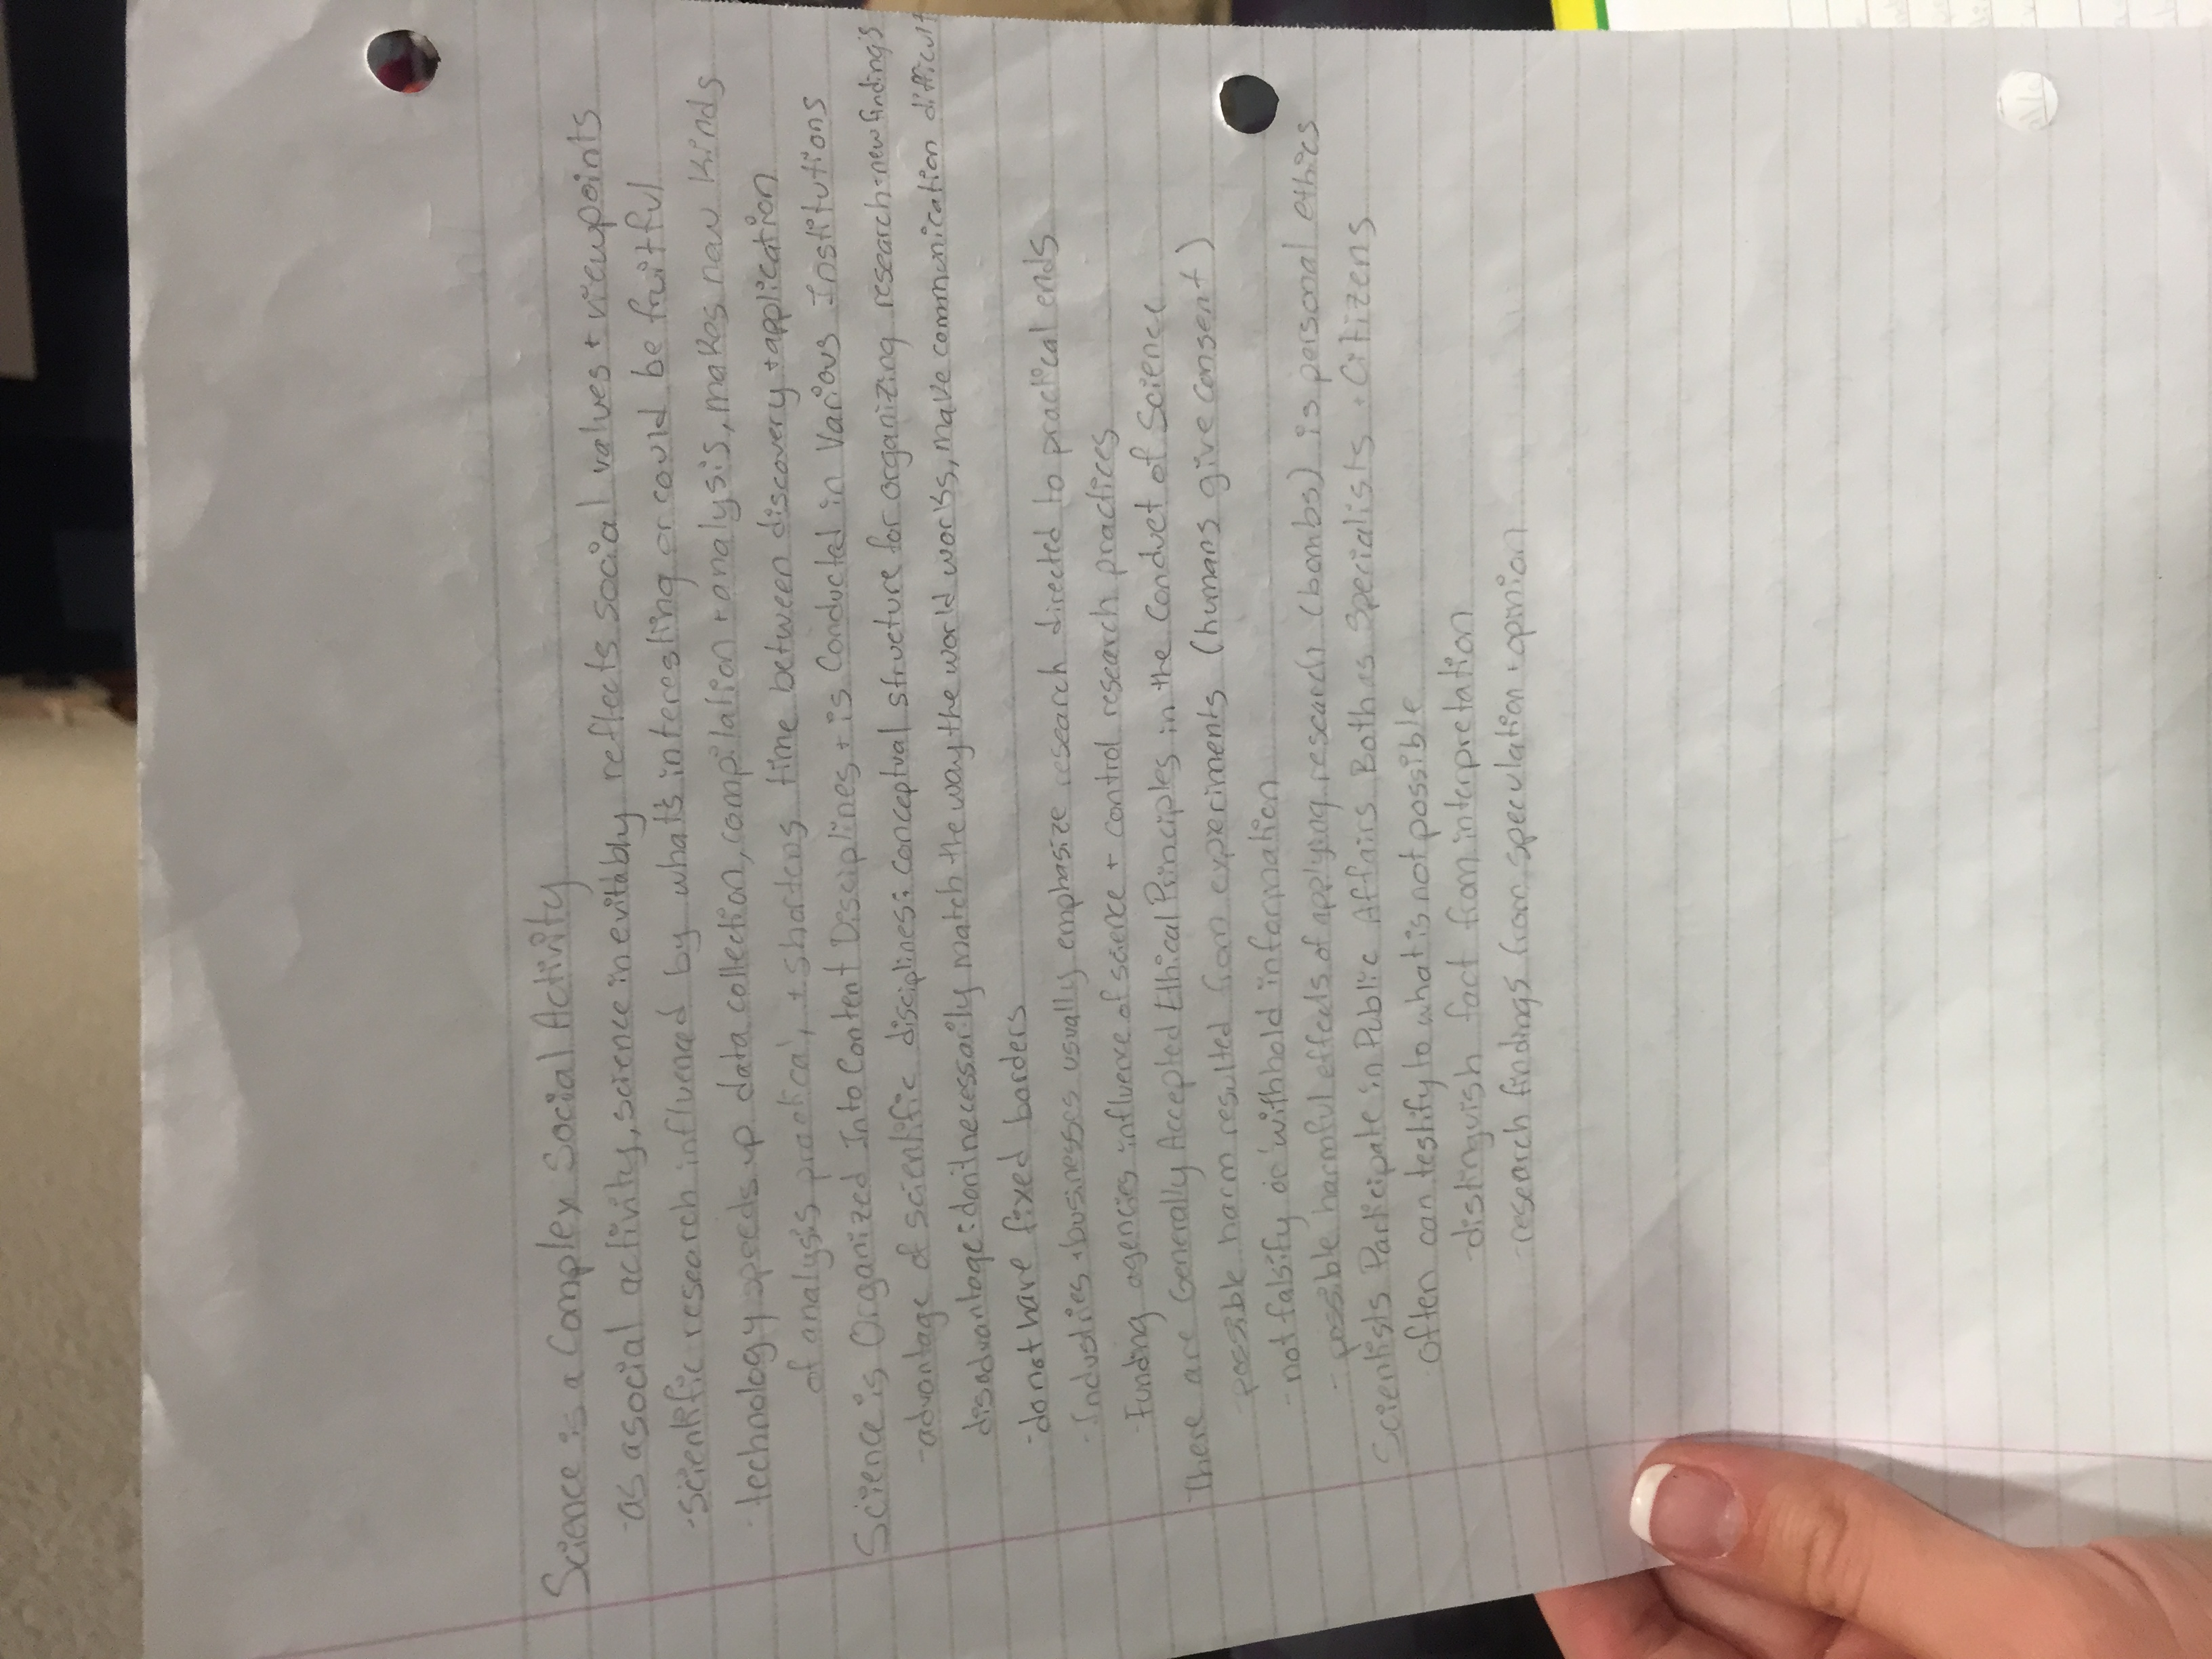 Science is a Complex Social Activity
-as a social activity, science inevitably reflects social values + viewpoints
-scientific research influenced by what's interesting or could be fruitful
-technology speeds up data collection, compilation + analysis, makes new kinds
of analysis practical, + shortens time between discovery + application
Science is Organized Into Content Disciplines + is Conducted in Various Institutions
-advantage of scientific disciplines: conceptual structure for organizing research + new findings
disadvantage: don't necessarily match the way the world works, make communication difficult
-do not have fixed borders
-Industries + businesses usually emphasize research directed to practical ends
-Funding agencies influence of science + control research practices
There are Generally Accepted Ethical Principles in the Conduct of Science
-possible harm resulted from experiments (humans give consent)
-not falsify or withhold information
-possible harmful effects of applying research (bombs) is personal ethics
Scientists Participate in Public Affairs Both as Specialists + Citizens
Often can testify to what is not possible
-distinguish fact from interpretation
-research findings from speculation + opinion